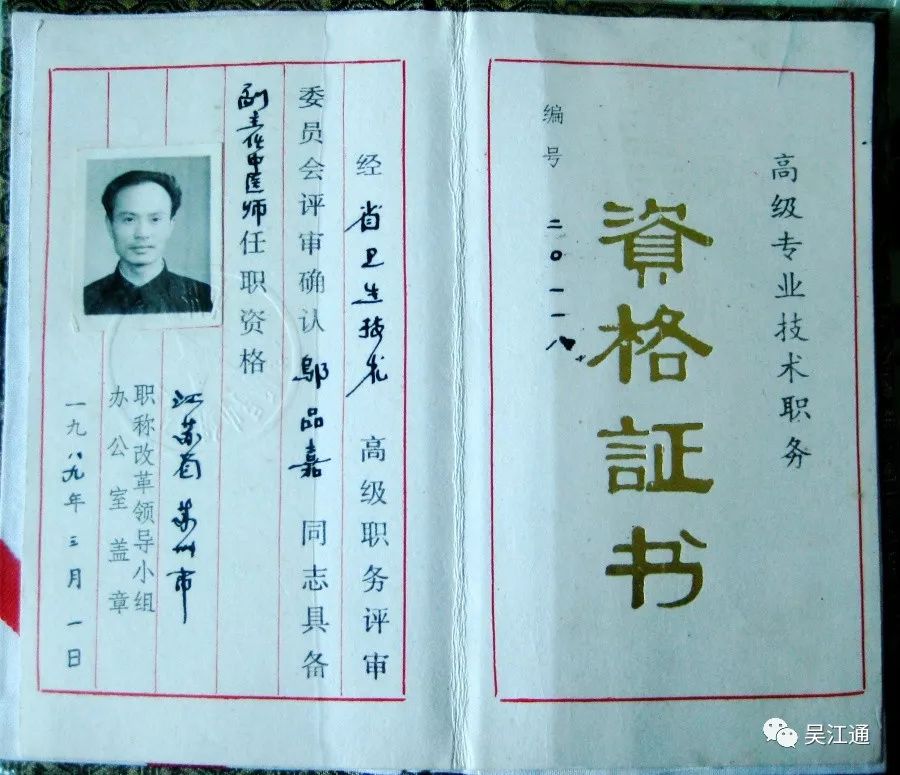 高级专业技术职务
資格証书
编号 二〇一一八
经省卫生技术高级职务评审
委员会评审确认邬品嘉同志具备
副主任中医师任职资格
江苏省苏州市
职称改革领导小组
办公室盖章
一九八九年三月一日
吴江通